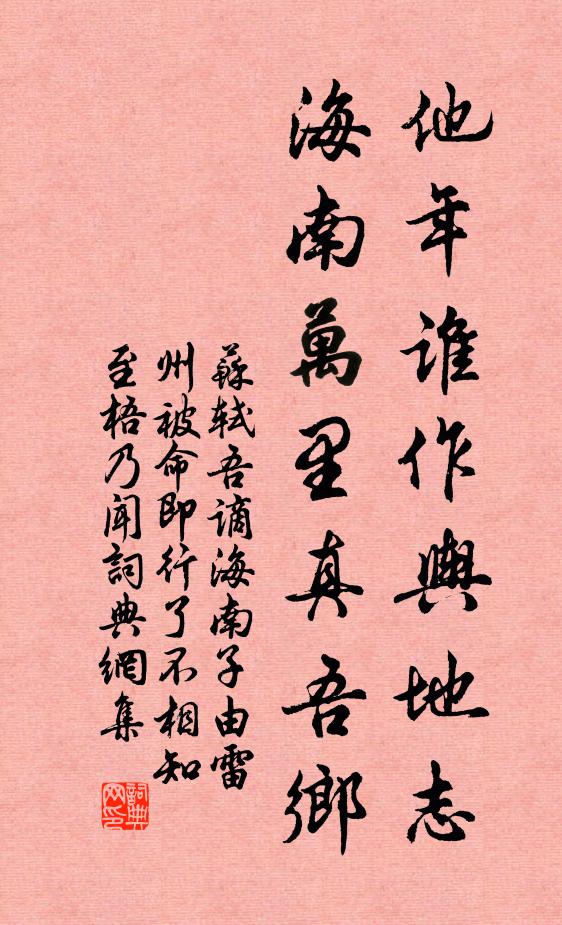 他年誰作輿地志
海南萬里真吾鄉
蘇軾吾謫海南子由雷
州被命即行了不相知
至梧乃聞詞典網集
詞典
网印